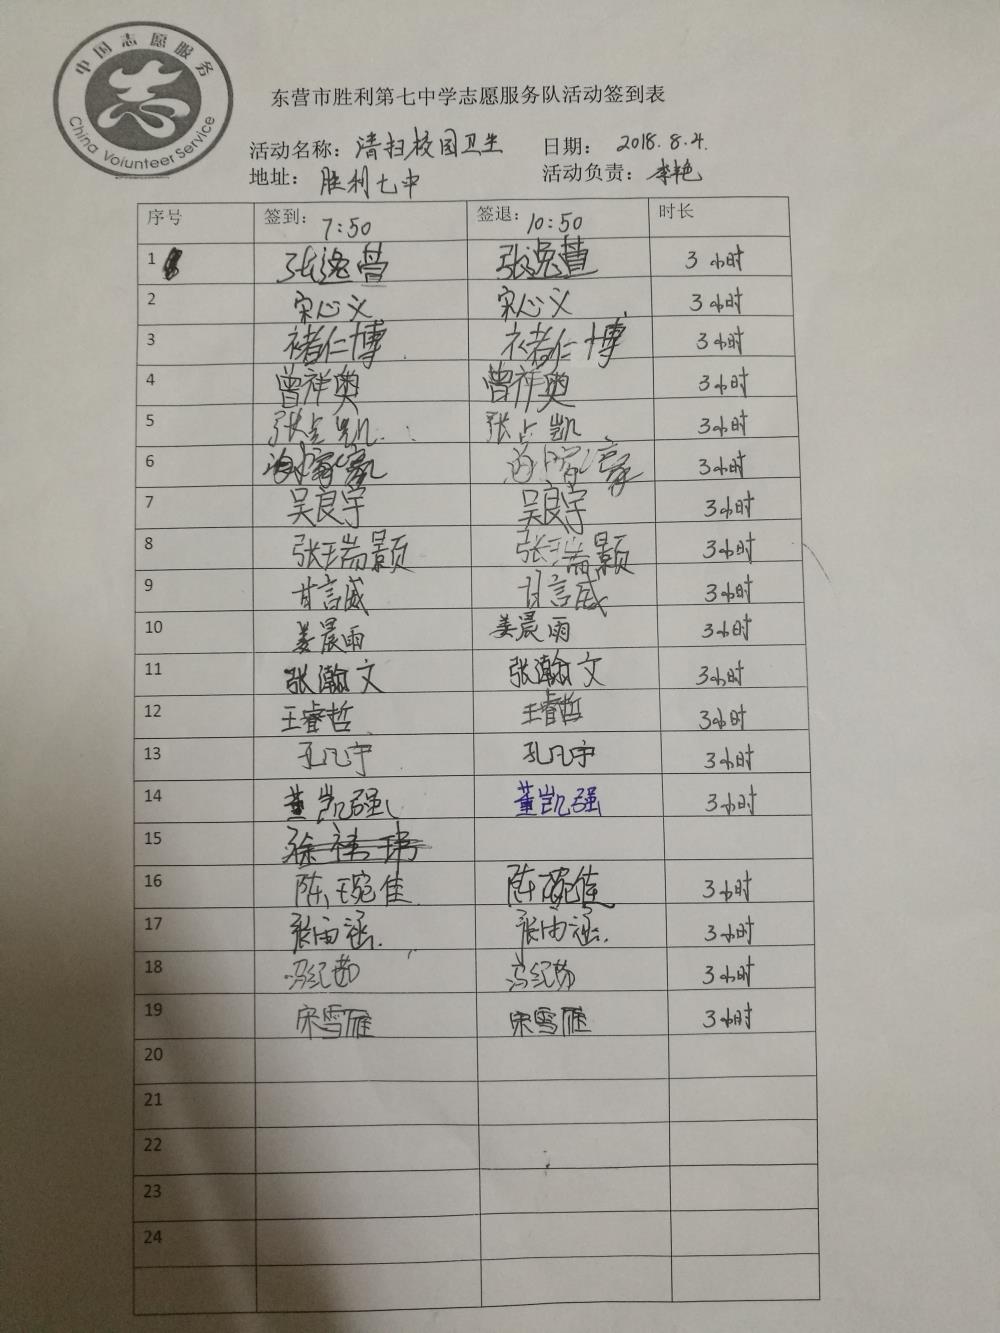 中国志愿服务
志
China Volunteer Service
东营市胜利第七中学志愿服务队活动签到表
活动名称：清扫校园卫生 日期：2018.8.4.
地址：胜利七中 活动负责：李艳
序号 签到：7:50 签退：10:50 时长
1 张逸萱 张逸萱 3小时
2 宋心义 宋心义 3小时
3 褚仁博 褚仁博 3小时
4 曾祥奥 曾祥奥 3小时
5 张占凯 张占凯 3小时
6 3小时
7 吴良宇 吴良宇 3小时
8 张瑞颢 张瑞颢 3小时
9 甘言威 甘言威 3小时
10 姜晨雨 姜晨雨 3小时
11 张瀚文 张瀚文 3小时
12 王睿哲 王睿哲 3小时
13 孔凡宇 孔凡宇 3小时
14 董凯强 董凯强 3小时
15 徐祎玮
16 陈琬佳 陈琬佳 3小时
17 张雨涵. 张雨涵. 3小时
18 冯纪茹 冯纪茹 3小时
19 宋雪雁 宋雪雁 3小时
20
21
22
23
24